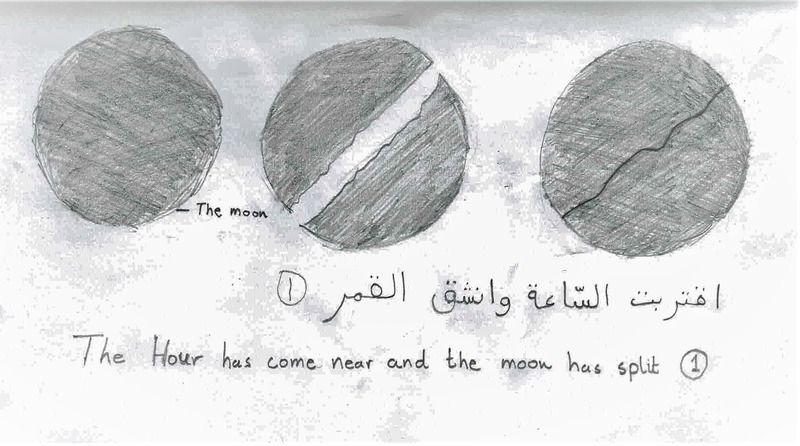 — The moon
اقتربت السّاعة وانشق القمر ①
The Hour has come near and the moon has split ①